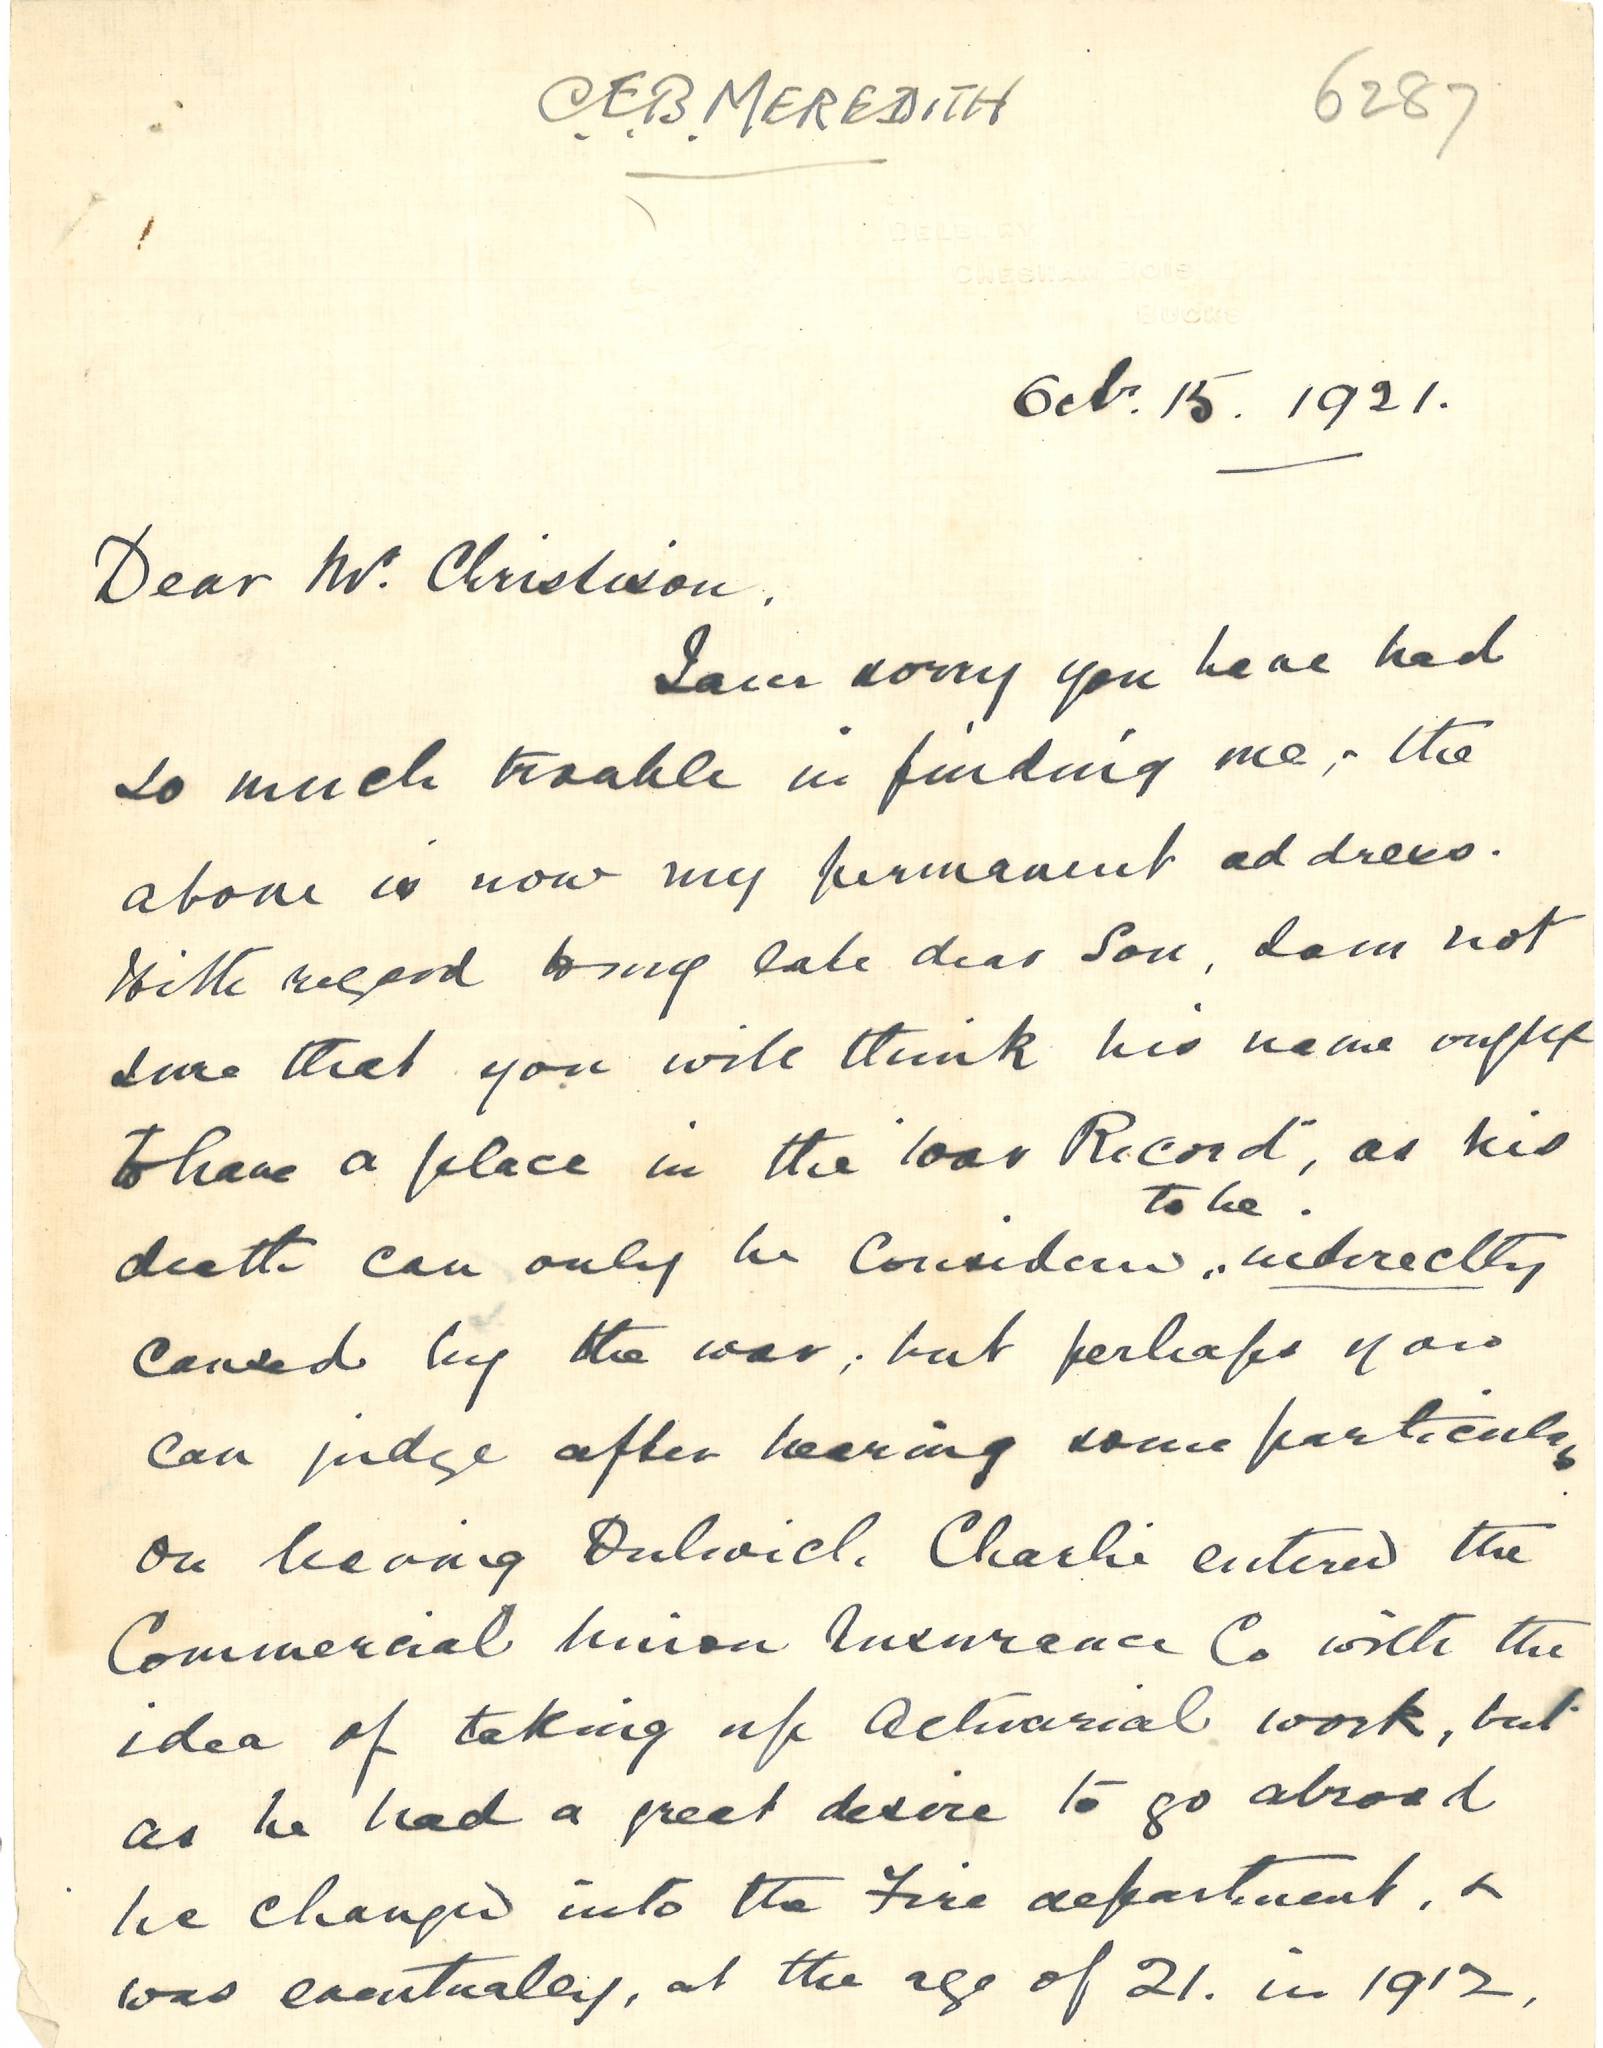 C.E.B. MEREDITH
6287
CHESHAM BOIS
BUCKS
Octr. 15. 1921.
Dear Mr. Christison,
I am sorry you have had
so much trouble in finding me; the
above is now my permanent address.
With regard to my late dear Son, I am not
sure that you will think his name ought
to have a place in the "War Record", as his
to be
death can only be considered indirectly
caused by the war; but perhaps you
can judge after hearing some particulars
on leaving Dulwich Charlie entered the
Commercial Union Insurance Co with the
idea of taking up Actuarial work, but
as he had a great desire to go abroad
he changed into the Fire department, &
was eventually, at the age of 21. in 1912,